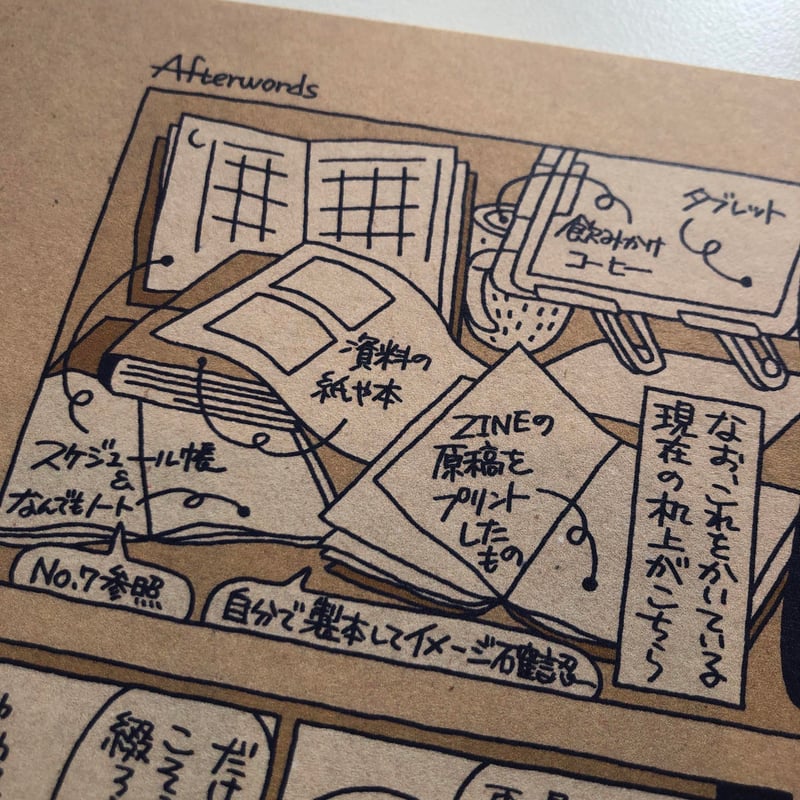 Afterwords
タブレット
飲みかけ
コーヒー
資料の
紙や本
ZINEの
原稿を
プリント
した
もの
なお、これをかいている
現在の机上がこちら
スケジュール帳
&
なんでもノート
No.7参照
自分で製本してイメージ確認
だけ
こそ
綴る